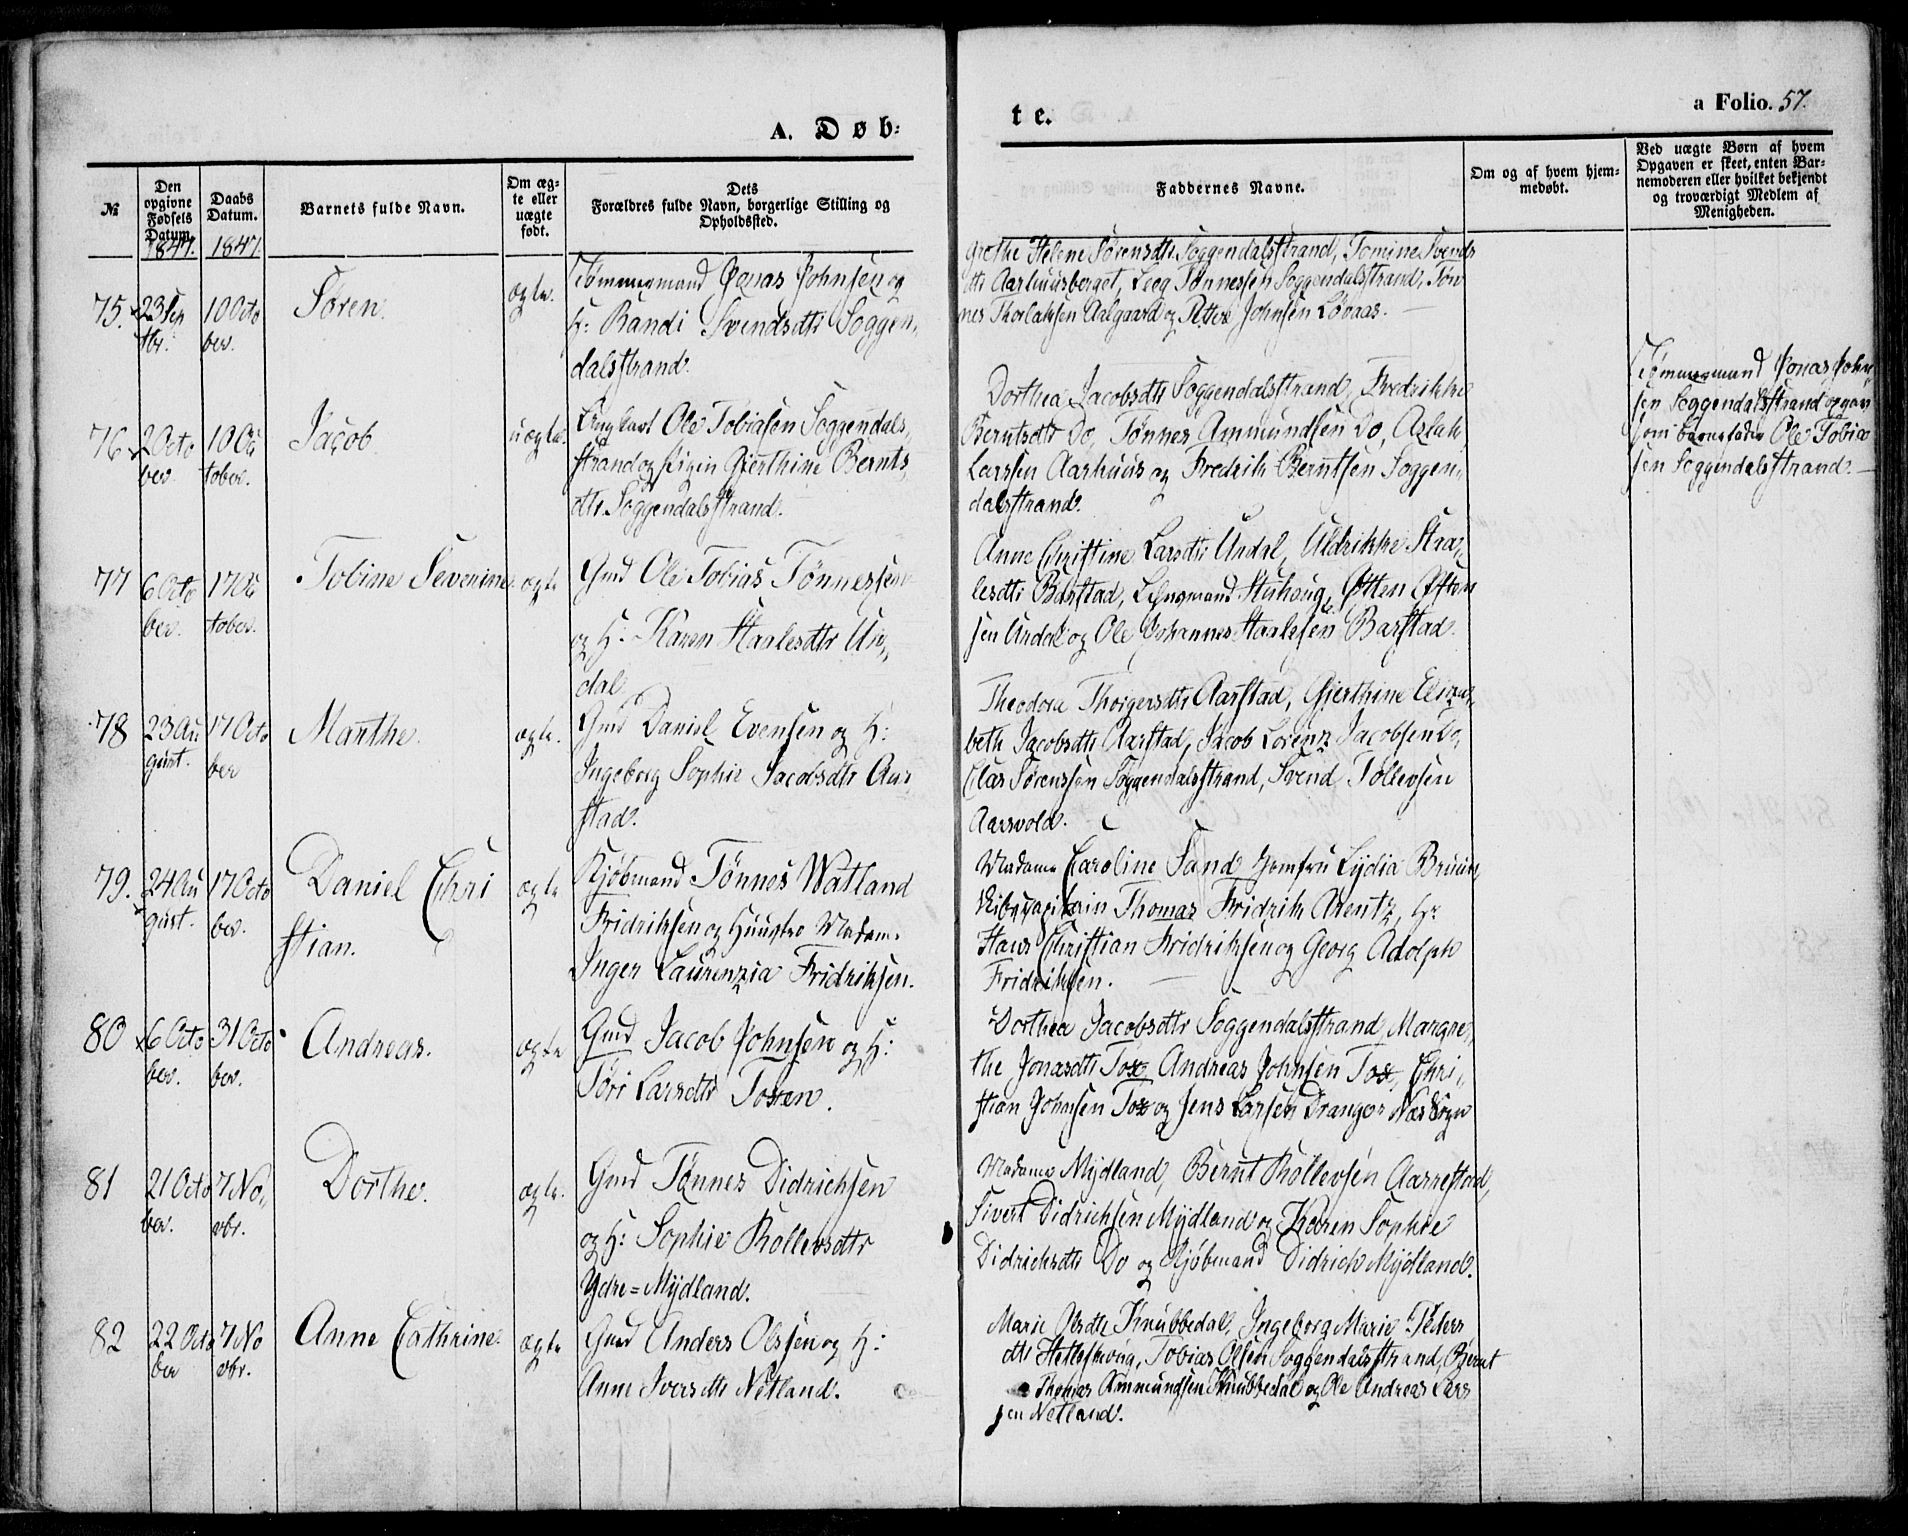 A. Døb=
te.
a Folio. 57.
№
Den opgivne Fødsels Datum.
1847.
Daabs Datum.
1847.
Barnets fulde Navn.
Om ægte eller uægte født.
Dets Forældres fulde Navn, borgerlige Stilling og Opholdssted.
Faddernes Navne.
Om og af hvem hjemmedøbt.
Ved uægte Børn af hvem Opgaven er skeet, enten Barnemoderen eller hvilket bekjendt og troværdigt Medlem af Menigheden.
75.
23 Sep
tbr.
10 Octo
ber.
Søren.
ægte.
Tømmermand Jonas Johnsen og
H: Randi Svendsdtr Soggen,
dalsstrand.
Grethe Helene Sørensdtr Soggendalsstrand, Tomine Svends
dtr Aarhuusberget, Leeg Tønnessen Soggendalsstrand, Tøn
nes Thorlaksen Aalgaard og Petter Johnsen Løvaas.
76
2 Octo
ber.
10 Oc
tober.
Jacob.
uægte.
Ungkarl Ole Tobiasen Soggendals,
strand og Pigen Gjerthine Bernts,
dtr Soggendalsstrand.
Dorthea Jacobsdtr Soggendalsstrand, Fredrikke
Berntsdtr Do, Tønnes Ammundsen Do, Aslak
Larssen Aarhuus og Fredrik Berntsen Soggen,
dalsstrand.
Tømmermand Jonas John
sen Soggendalsstrand opgav
som barnefader Ole Tobia
sen Soggendalsstrand.
77
6 Octo
ber.
17 Oc
tober.
Tobine Severine.
ægte
Gmd Ole Tobias Tønnessen
og H: Karen Staalesdtr Ur,
dal.
Anne Christine Larsdtr Urdal, Uldrikke Staa,
lesdtr Barstad, Lehnsmand Stuhoug, Otten Otten
sen Urdal og Ole Johannes Staalesen Barstad.
78
23 Au
gust.
17 Octo
ber
Marthe.
ægte.
Gmd Daniel Evensen og H:
Ingeborg Sophie Jacobsdtr Aar
stad.
Theodora Thorgersdtr Aarstad, Gjerthine Eliza,
beth Jacobsdtr Aarstad, Jacob Lorenz Jacobsen Do,
Clas Sørenssen Soggendalsstrand, Svend Tollevsen
Aarsvold.
79.
24 Au
gust.
17 Octo
ber.
Daniel Chri
stian.
ægte
Kjøbmand Tønnes Watland
Fridriksen og Huustro Madam
Inger Laurenzia Fridriksen.
Madame Caroline Sand, Jomfru Lydia Bruun,
Thomas Fridrik Arentz, Hr
Hans Christian Fridriksen og Georg Adolph
Fridriksen.
80
6 Octo
ber.
31 Octo
ber.
Andreas.
ægte
Gmd Jacob Johnsen og H:
Tøri Larsdtr Toxen.
Dorthea Jacobsdtr Soggendalsstrand, Margre,
the Jonasdtr Tox, Andreas Johnsen Tox, Chri,
stian Johnsen Tox og Jens Larsen Dranger Næs Sogn
81
21 Octo
ber.
7 No,
vbr.
Dorthe.
ægte.
Gmd Tønnes Didrichsen
og H: Sophie Rollevsdtr
Ydre=Mydland.
Madame Mydland, Bernt Rollevsen Aarrestad,
Sivert Didrichsen Mydland og Karen Sophie
Didrichsdtr Do og Kjøbmand Didrich Mydland.
82
22 Octo
ber
7 No
vbr.
Anne Cathrine.
ægte
Gmd Anders Olssen og H:
Anne Iversdtr Netland.
Marie Olsdtr Knubbedal, Ingeborg Marie Peders
dtr Tobias Olsen Soggendalsstrand, Bernt
Thomas Ammundsen Knubbedal og Ole Andreas Lars
sen Netland.